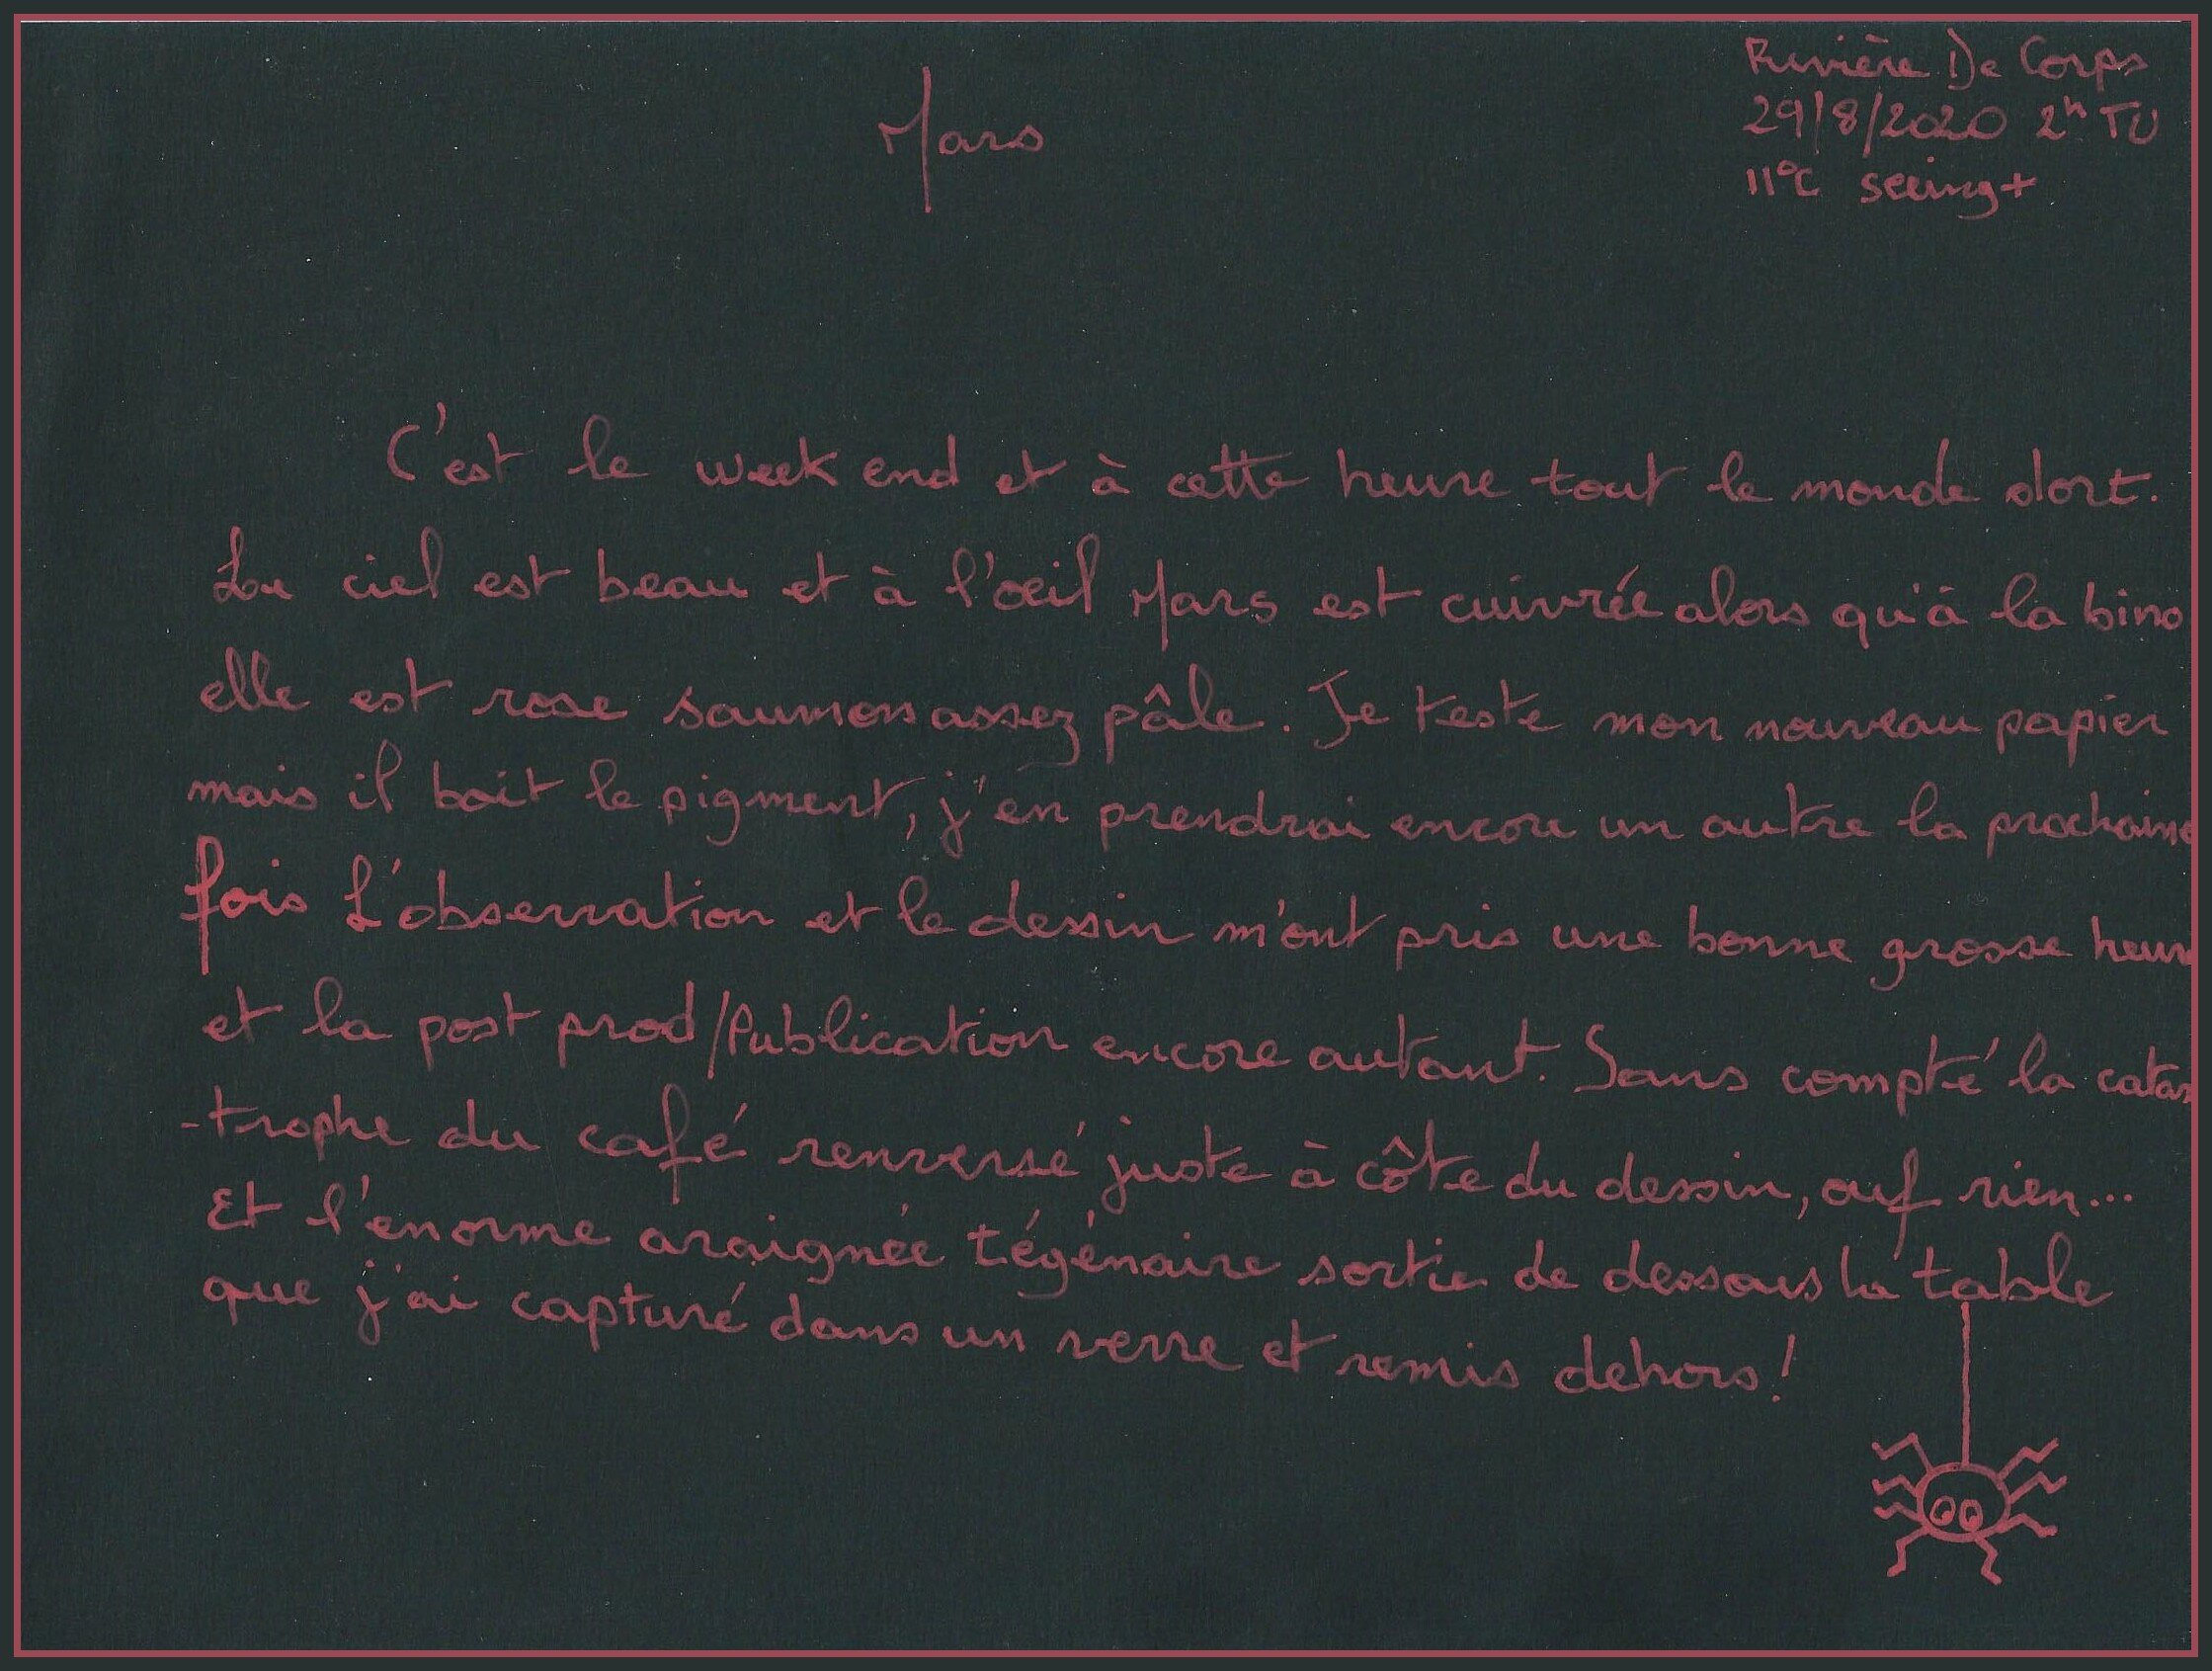 Mars
Rivière De Corps
29/8/2020 2h TU
11°C seeing+
C'est le week end et à cette heure tout le monde dort.
Le ciel est beau et à l'oeil Mars est cuivrée alors qu'à la bino
elle est rose saumon assez pâle. Je teste mon nouveau papier
mais il boit le pigment, j'en prendrai encore un autre la prochaine
fois L'observation et le dessin m'ont pris une bonne grosse heure
et la post prod/Publication encore autant. Sans compté la catas
-trophe du café renversé juste à côte du dessin, ouf rien...
Et l'enorme araignée tégénaire sortie de dessous la table
que j'ai capturé dans un verre et remis dehors!